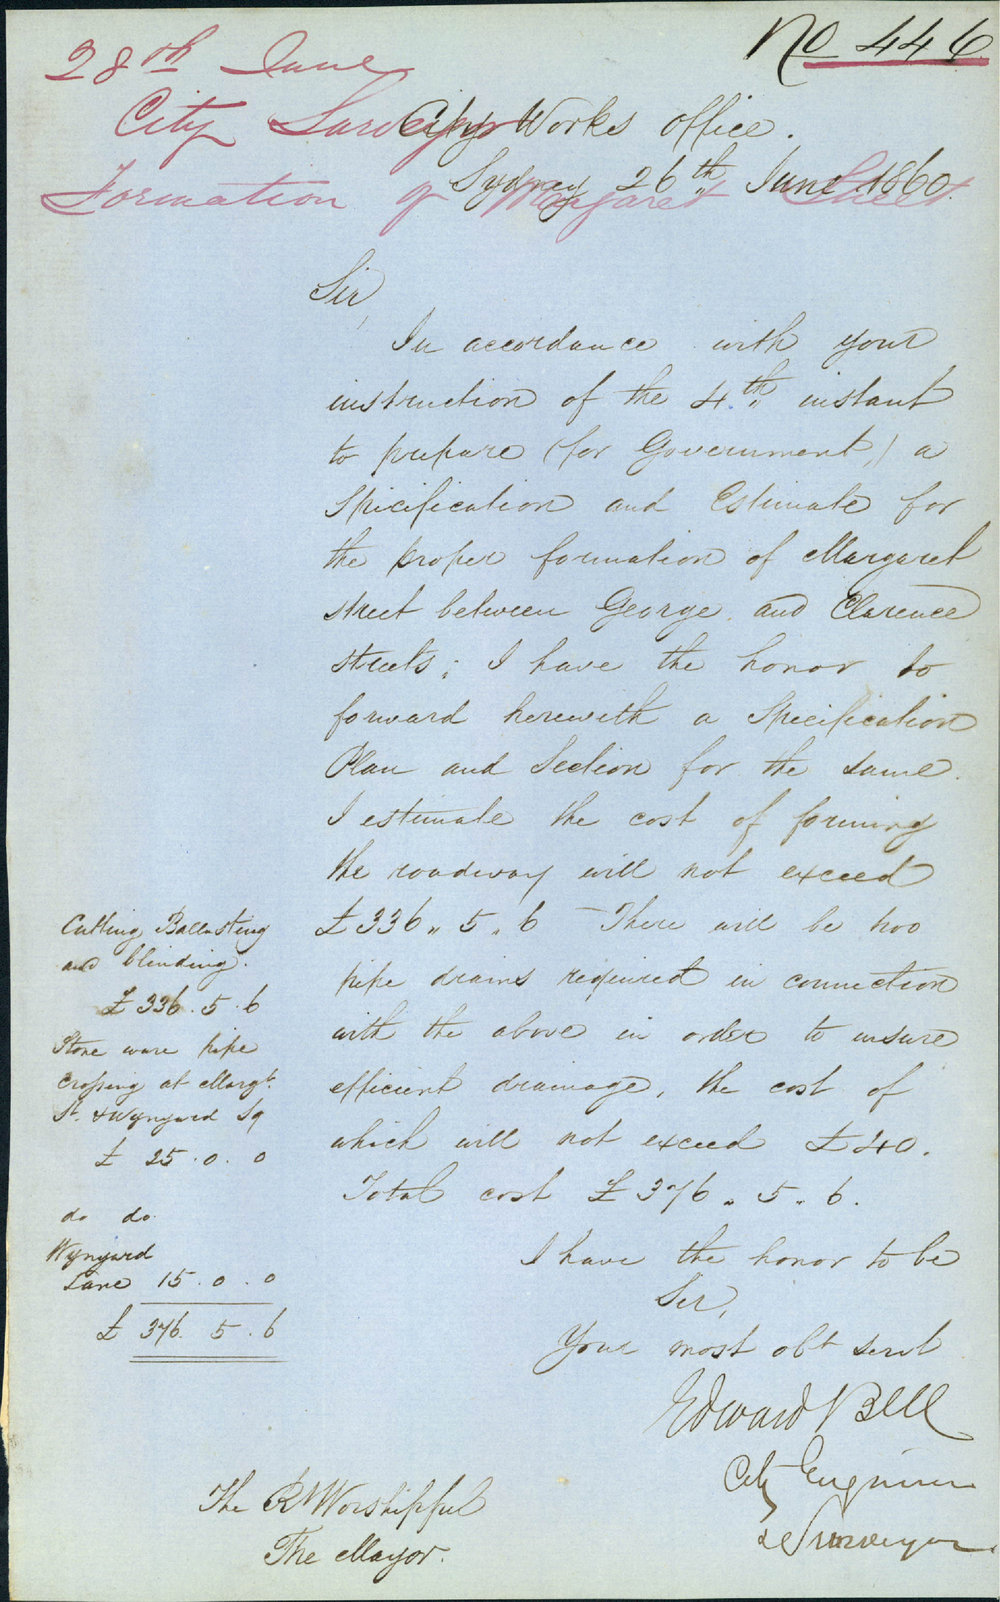 No 446
28th June
City Surveyor
City Works Office.
Formation of Margaret Street
Sydney 26th June 1860
Sir,
In accordance with your
instruction of the 4th instant
to prepare (for Government,) a
Specification and Estimate for
the proper formation of Margaret
street between George and Clarence
streets; I have the honor to
forward herewith a Specification
Plan and Section for the same.
I estimate the cost of forming
the roadway will not exceed
£336 " 5 " 6 There will be two
pipe drains required in connection
with the above in order to insure
efficient drainage, the cost of
which will not exceed £40.
Total cost £376 " 5 " 6.
Cutting Ballasting
and blinding.
£ 336 . 5 . 6
Stone ware pipe
crossing at Margt.
St. & Wynyard Sq
£ 25 . 0 . 0
do do
Wynyard
Lane 15 . 0 . 0
£ 376. 5 . 6
I have the honor to be
Sir,
Your most obt servt
Edward Bell
City Engineer
& Surveyor
The Rt Worshipful
The Mayor.